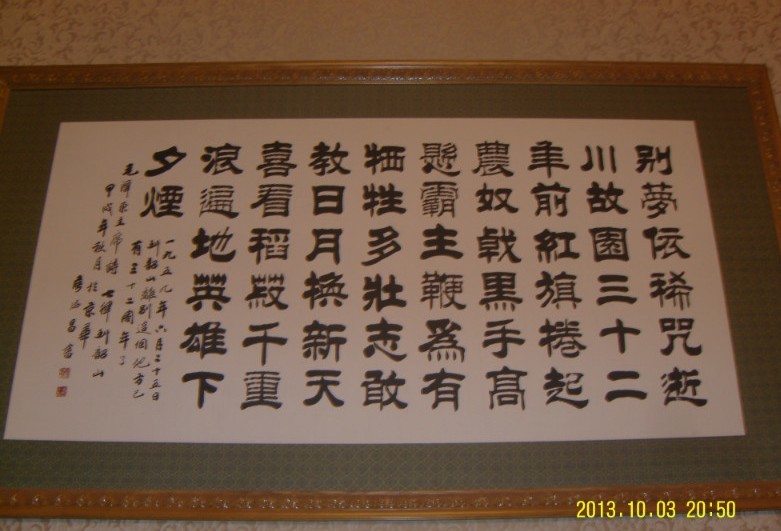 别夢依稀咒逝
川故園三十二
年前紅旗捲起
農奴戟黑手高
懸霸主鞭為有
牺牲多壮志敢
教日月换新天
喜看稻菽千重
浪遍地英雄下
夕煙
一九五九年六月二十五日
到韶山離别這個地方已
有三十二周年了
毛澤东主席詩七律到韶山
甲戌年秋月於京華
書
2013.10.03 20:50